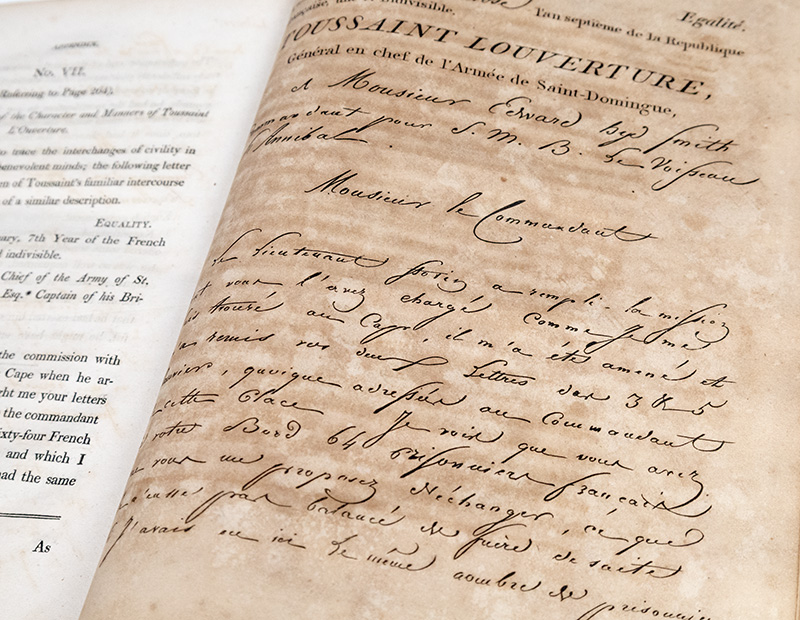 APPENDIX.
No. VII.
(Referring to Page 264).
of the Character and Manners of Toussaint
L'Ouverture.
to trace the interchanges of civility in
benevolent minds; the following letter
en of Toussaint's familiar intercourse
of a similar description.
EQUALITY.
uary, 7th Year of the French
d indivisible.
Chief of the Army of St.
Esq.* Captain of his Bri-
the commission with
Cape when he ar-
ght me your letters
the commandant
ixty-four French
and which I
had the same
As
Egalité.
l'an septième de la République
française, une et Indivisible.
TOUSSAINT LOUVERTURE,
Général en chef de l'Armée de Saint-Domingue,
A Monsieur Edward Smith
mandant pour S. M. B. Le Voisseau
Annibal.
Monsieur le Commandant
Le Lieutenant a rempli la mission
vous l'avez chargé comme je me
trouré au Cap, il m'a été amené et
remis vos deux Lettres des 3 & 5
vier, quoique adressés au Commandant
cette Place Je vois que vous avez
votre Bord 64 prisonniers français
vous me proposez d'échanger, ce que
n'eusse pas balancé de faire de suite
J'avais eu ici Le même nombre de prisonnie